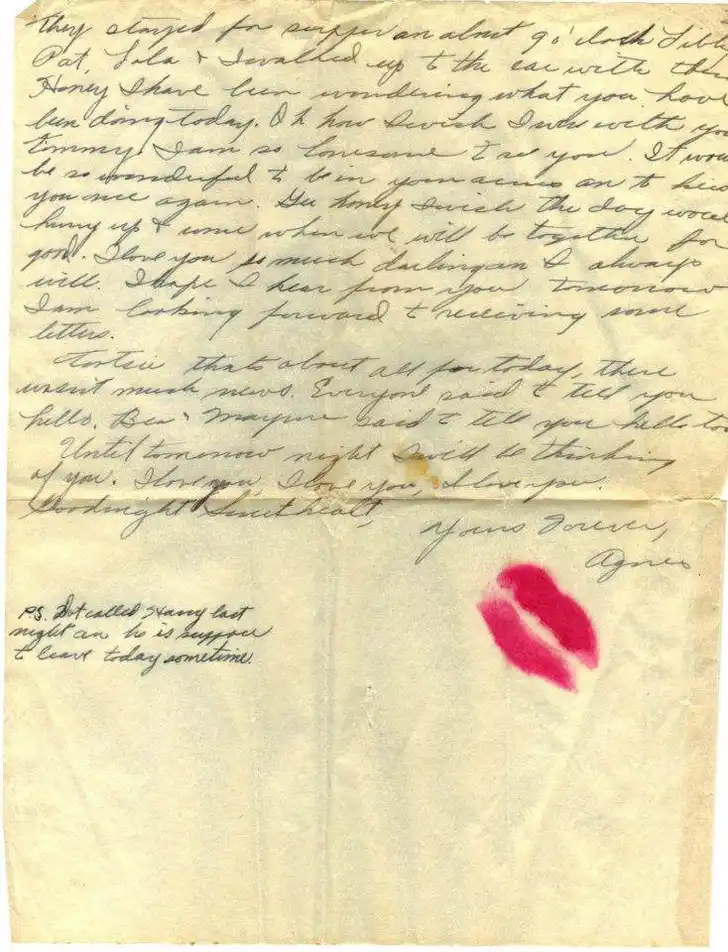 they stayed for supper an about 9 o'clock Libb
Pat, Lila & I walked up to the car with them
Honey I have been wondering what you have
been doing today. Oh how I wish I was with you
Timmy. I am so lonesome to see you. It wou
be so wonderful to be in your arms an to kiss
you once again. Gee honey I wish the day would
hurry up & come when we will be together for
good. I love you so much darling an I always
will. I hope I hear from you tomorrow
I am looking forward to receiving some
letters.
Tootsie thats about all for today, there
wasn't much news. Everyone said to tell you
hello. Bea & Mayme said to tell you hello too
Until tomorrow night I will be thinking
of you. I love you, I love you, I love you.
Goodnight Sweetheart,
Yours Forever,
Agnes
P.S. Dot called Harry last
night an he is suppose
to leave today sometime.